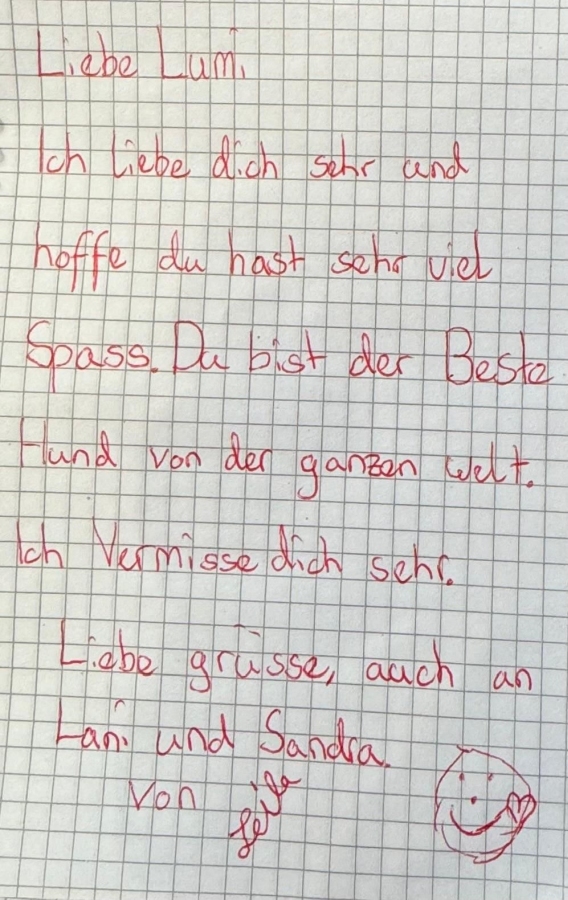 Liebe Lumi,
Ich Liebe dich sehr und
hoffe du hast sehr viel
Spass. Du bist der Beste
Hund von der ganzen welt.
Ich Vermisse dich sehr.
Liebe grüsse, auch an
Lani und Sandra.
von